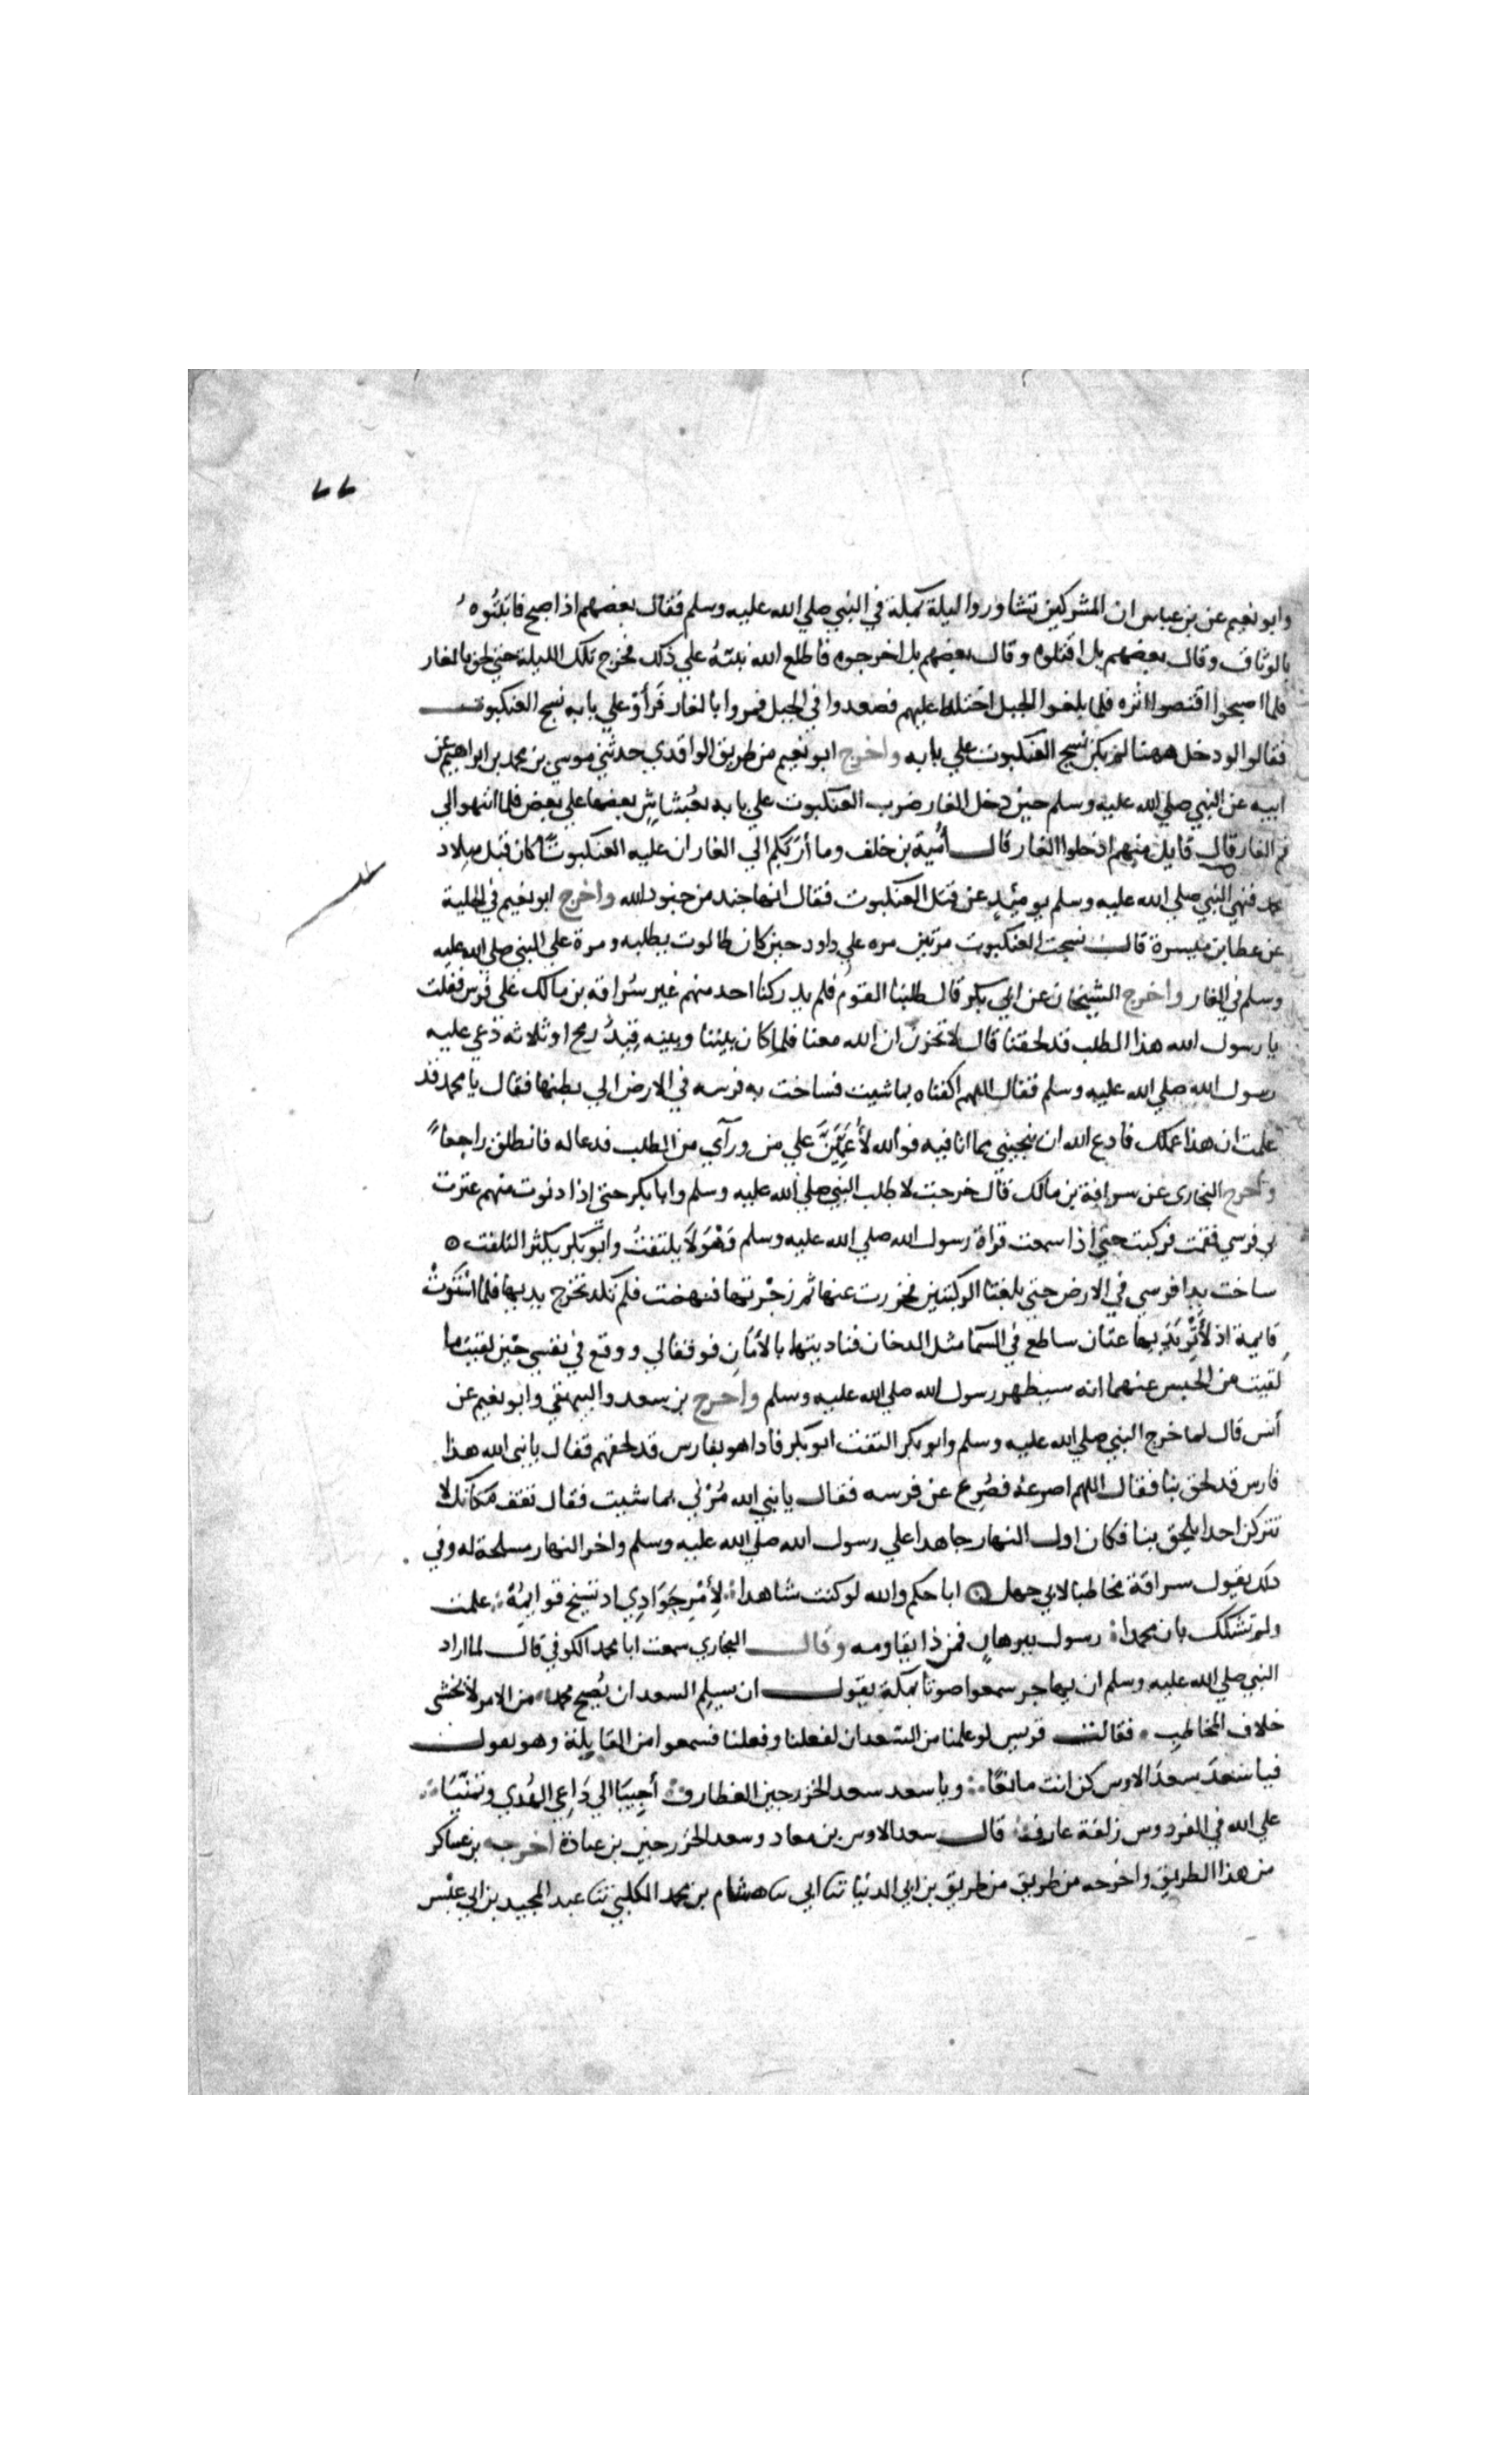 ٧٧
وابو نعيم عن بن عباس ان المشركين تشاوروا ليلة بمكة في النبي صلي الله عليه وسلم فقال بعضهم اذا اصبح فاثبتوه
بالوثاق وقال بعضهم بل اقتلوه وقال بعضهم بل اخرجوه فاطلع الله نبيه علي ذلك فخرج تلك الليلة حتي لحق بالغار
فلما اصبحوا اقتصوا اثره فلما بلغوا الجبل اختلط عليهم فصعدوا في الجبل فمروا بالغار فرأو علي بابه نسج العنكبوت
فقالوا لو دخل ههنا لم يكن نسج العنكبوت علي بابه واخرج ابو نعيم من طريق الواقدي حدثني موسي بن محمد بن ابراهيم عن
ابيه عن النبي صلي الله عليه وسلم حين دخل الغار ضرب العنكبوت علي بابه بعضها علي بعض فلما انتهوا الي
فم الغار قال قايل منهم ادخلوا الغار قال أمية بن خلف وما أربكم الي الغار ان عليه العنكبوتا كان قبل ميلاد
محمد فنهي النبي صلي الله عليه وسلم يومئذ عن قتل العنكبوت فقال انها جند من جنود الله واخرج ابو نعيم في الحلية
عن عطا بن ميسرة قال نسجت العنكبوت مرتين مره علي داود حين كان طالوت يطلبه ومرة علي النبي صلي الله عليه
وسلم في الغار واخرج الشيخان عن ابي بكر قال طلبنا القوم فلم يدركنا احد منهم غير سراقة بن مالك علي فرس فقلت
يا رسول الله هذا الطلب قد لحقنا قال لا تحزن ان الله معنا فلما كان بيننا وبينه قيد رمح او ثلاثه دعي عليه
رسول الله صلي الله عليه وسلم فقال اللهم اكفناه بما شيت فساخت به فرسه في الارض الي بطنها فقال يا محمد قد
علمت ان هذا عملك فادع الله ان ينجيني مما انا فيه فوالله لأعمين علي من ورآي من الطلب فدعا له فانطلق راجعا
واخرج البخاري عن سراقة بن مالك قال خرجت لاطلب النبي صلي الله عليه وسلم وابا بكر حتي اذا دنوت منهم عثرت
بي فرسي فقمت فركبت حتي اذا سمعت قراة رسول الله صلي الله عليه وسلم وهو لا يلتفت وابو بكر يكثر التلفت
ساخت يدا فرسي في الارض حتي بلغتا الركبتين فخررت عنها ثم زجرتها فنهضت فلم تكد تخرج يديها فلما استوت
قايمة اذ لأثر يديها عثان ساطع في السما مثل الدخان فناديتها بالأمان فوقفا لي ووقع في نفسي حين لقيت ما
لقيت من الحبس عنهما انه سيظهر رسول الله صلي الله عليه وسلم واخرج بن سعد والبيهقي وابو نعيم عن
أنس قال لما خرج النبي صلي الله عليه وسلم وابو بكر التفت ابو بكر فاذا هو بفارس قد لحقهم فقال يا نبي الله هذا
فارس قد لحق بنا فقال اللهم اصرعه فصرع عن فرسه فقال يا نبي الله مرني بما شيت فقال تقف مكانك لا
تتركن احدا يلحق بنا فكان اول النهار جاهدا علي رسول الله صلي الله عليه وسلم واخر النهار مسلحة له وفي
ذلك يقول سراقة مخاطبا لابي جهل ابا حكم والله لو كنت شاهدا لأمر جوادي اذ تسيخ قوايمه علمت
ولم تشكك بان محمدا رسول ببرهان فمن ذا يقاومه وقال البخاري سمعت ابا محمد الكوفي قال لما اراد
النبي صلي الله عليه وسلم ان يهاجر سمعوا صوتا بمكة يقول ان يسلم السعدان يصبح محمد من الامر لا يخشي
خلاف المخاطب فقالت قريس لو علمنا من السعدان لفعلنا وفعلنا فسمعوا من القابلة وهو يقول
فيا سعد سعد الاوس كن انت مانعا ويا سعد سعد الخزرجين الغطارف أجيبا الي داعي الهدي وتمنيا
علي الله في الفردوس زلفة عارف قال سعد الاوس بن معاد وسعد الخزرجين بن عبادة اخرجه بن عساكر
من هذا الطريق واخرجه من طريق من طريق بن ابي الدنيا ثنا ابي ثنا هشام بن محمد الكلبي ثنا عبد المجيد بن ابي عبس